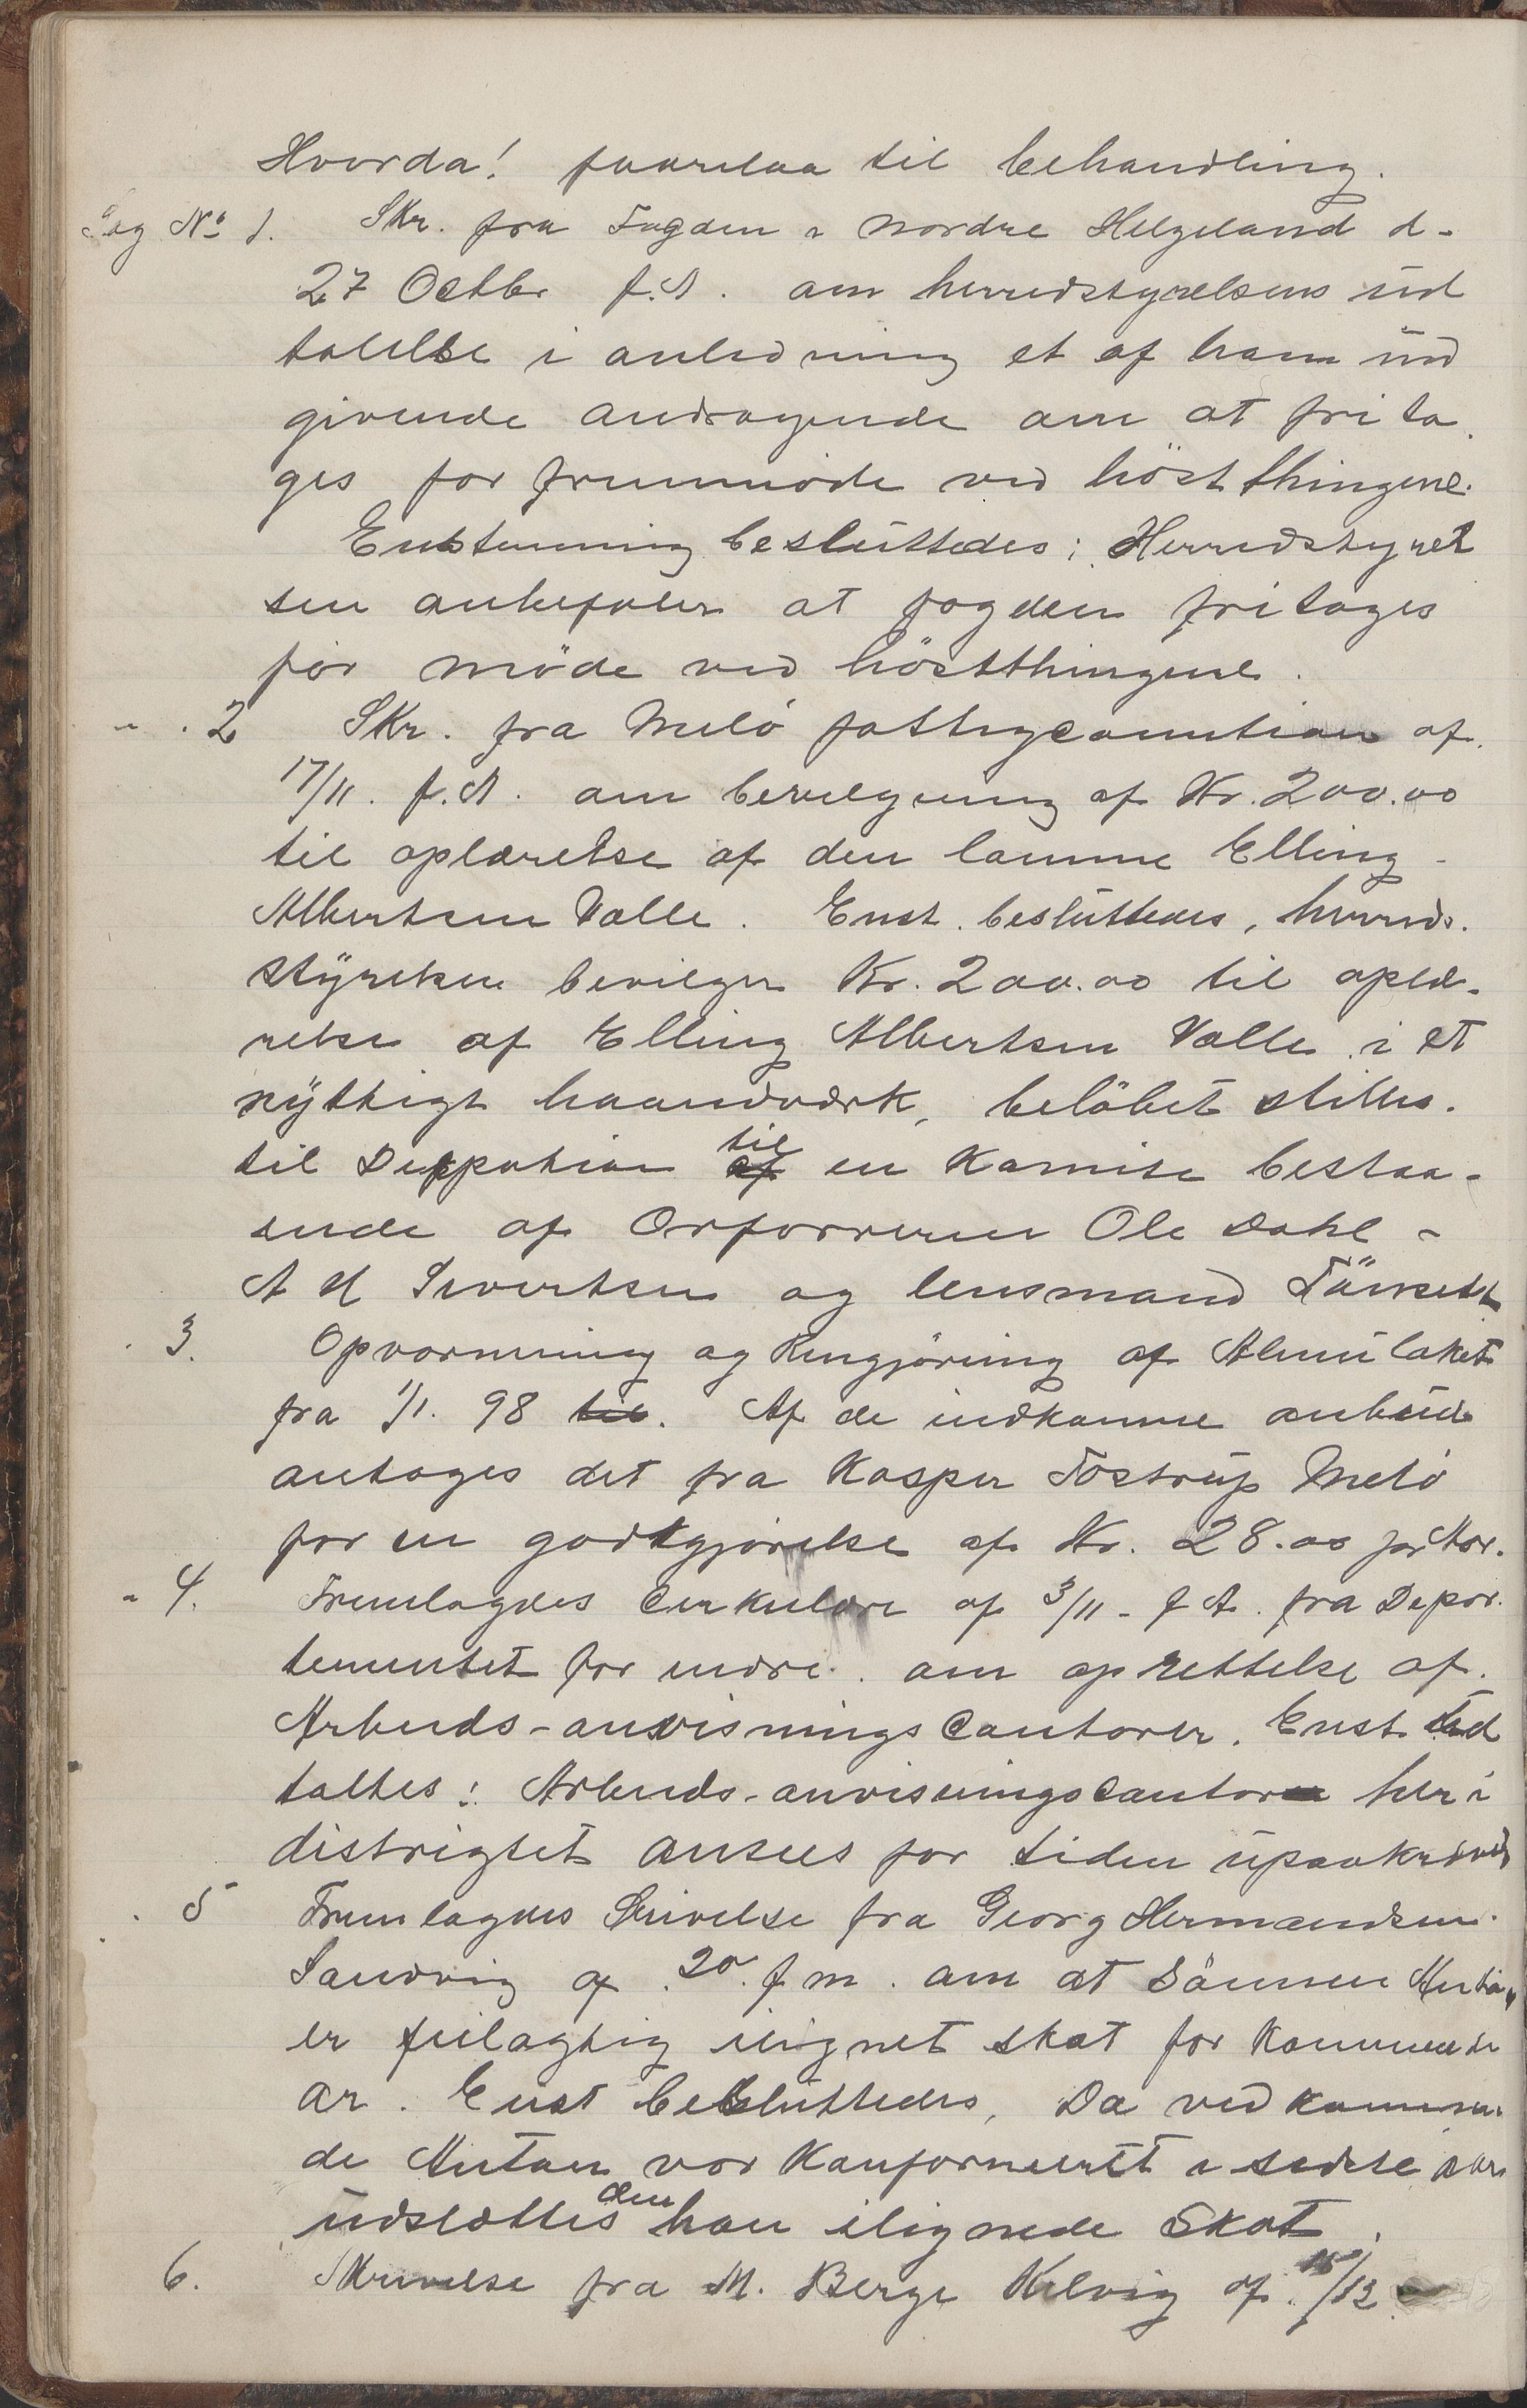 Hvorda! foorelaa til behandling.
Sag No 1. Skr. fra Fogden i Nordre Helgeland d-
27 Octbr f.A. om herredstyrelsens ud
talelse i anledning et af ham ind
givende andragende om at frita
ges for fremmöde ved höstthingene.
Enstemmig besluttedes: Herredstyrel
sen anbefaler at fogden fritages
for möde ved höstthingene.
" . 2 Skr. fra Melö fattigcomition af
17/11. f.A. om bevilgning af Kr. 200.00
til oplærelse af den lamme Elling
Albertsen Valle. Enst. besluttedes, herreds.
styrelsen bevilger Kr. 200.00 til oplæ-
relse af Elling Albertsen Valle i et
nyttigt haandværk, belöbet stilles.
til Disppotion til en Komite bestaa-
ende af Orforreren Ole Dahl -
A H Sivertsen og lensmand
3. Opvarmning og Rengjöring af Almulaket
fra 1/1. 98 til. Af de indkomne anbud
antages det fra Kasper Tostrup Melö
for en godtgjörelse af Kr. 28.00 pr Aar.
" 4. Fremlagdes Cirkulære af 3/11 - f A. fra Depar.
tementet for indre. om oprettelse af.
Arbeids-anvisningsContorer. Enst. ud
taltes: Arbeids-anvisningscontor her i
distrigtet ansees for tiden upaakrævet
. 5 Fremlagdes Skrivelse fra Georg Hermandsen.
Sandvig af 20. f m. om at Sönnen Anton
er feilagtig ilignet skat for Kommende
ar. Enst besluttedes, Da vedkommen
de Anton var Konformeret i sidste aar
udslættes den han ilignede Skat.
6. Skrivelse fra M. Berge Kilvig af 15/12